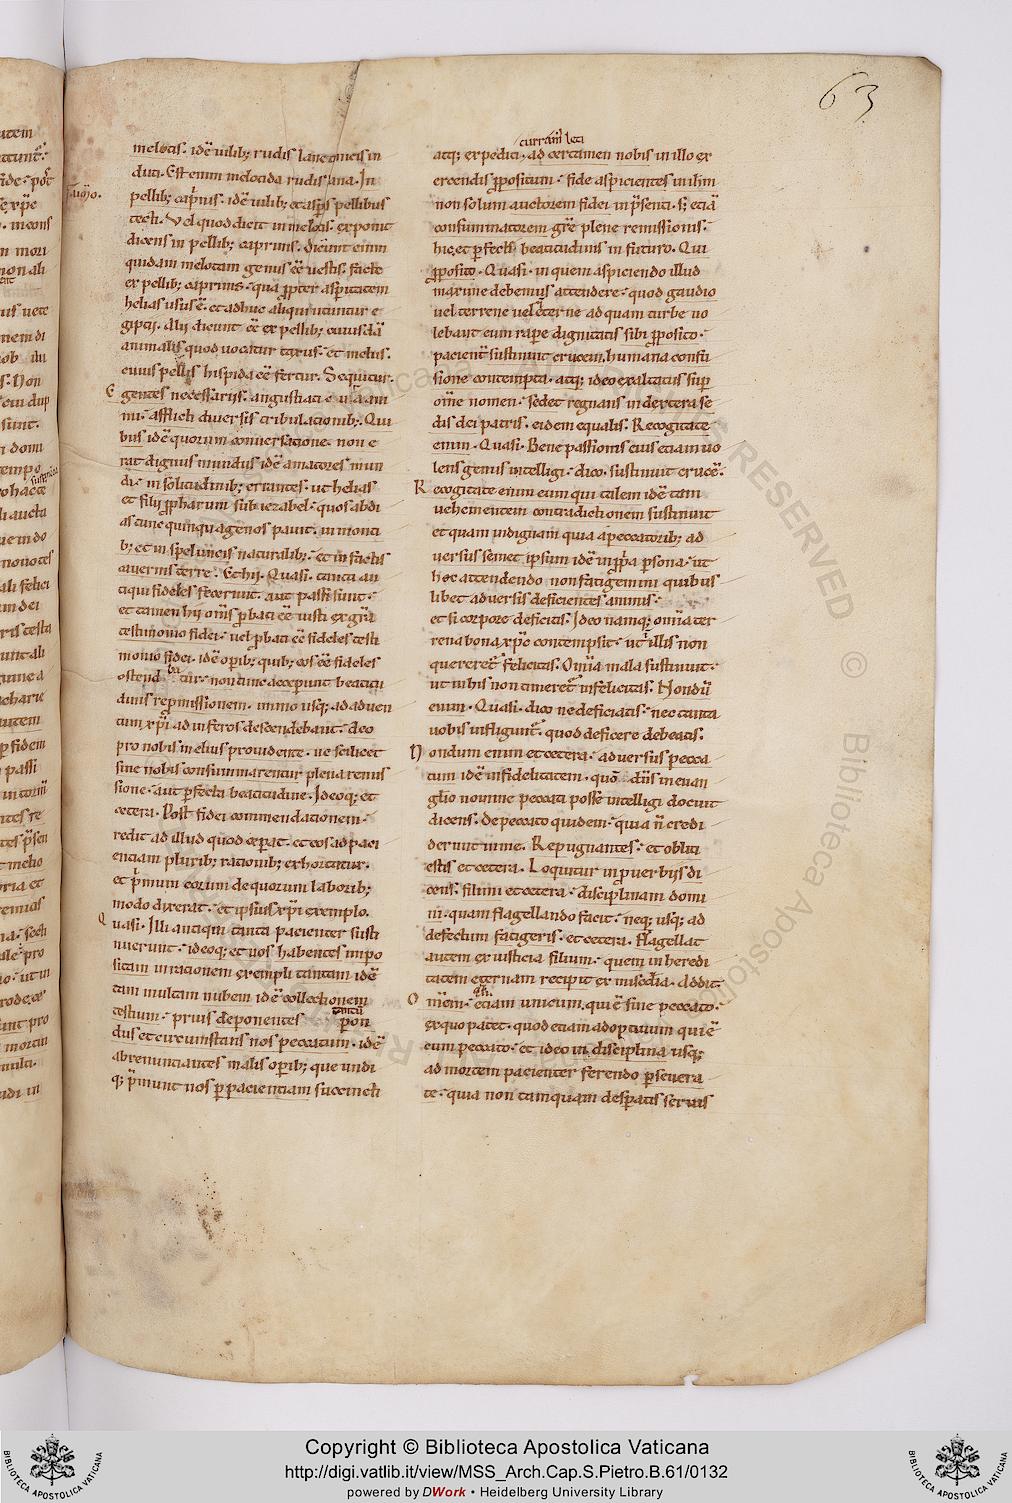 63
melotis. idē uilib; rudis lane tunicis in
duti. Est enim melocida rudis lana. In
pellib; cap̄nis. idē uilib; et asp̄is pellibus
tecti. Vel quod dicit in melotis. exponit
dicens in pellib; caprinis. dicunt enim
quidam melotam genus eē uestis. facte
ex pellib; caprinis. quā ꝓpter asperitatem
helias usus ē. et adhuc aliqui utuntur e
giptij. Alij dicunt eē ex pellib; cuiusdā
animalis quod uocatur taxus. et melus.
cuius pellis hispida eē fertur. Sequitur.
Egentes necessarijs. angustiati
mi. afflicti diuersis tribulationib;. Qui
bus idē quorum conuersatione. non e
rat dignus mundus idē amatores mun
di. in solitudinib; errantes. ut helias
et filij ꝓpharum sub iezabel. quos abdi
as tunc quinquagenos pauit. in monti
b; et in speluncis naturalib;. et in factis
cauernis terre. Et hij. Quasi. tanta an
tiqui fideles fecerunt. aut passi sunt.
et tamen hij om̄s ꝓbati eē iusti ex gr̄a
testimonio fidei. uel ꝓbati eē fideles testi
monio fidei. idē operib; quib; eos eē fideles
ostend ba tur. non tunc acceperunt beatitu
dinis repromissionem. immo usq; ad aduen
tum xp̄i ad inferos descendebant. deo
pro nobis melius prouidente. ut scilicet
sine nobis consummarentur plena remis
sione. aut perfecta beatitudine. Ideoq; et
cetera. Post fidei commendationem.
redit ad illud quod ceperat. et eos ad paci
entiam plurib; rationib; exhortatur.
et p̄mum eorum de quorum laborib;
modo dixerat. et ipsius xp̄i exemplo.
Quasi. Illi antiqui tanta pacienter susti
nuerunt. ideoq; et uos habentes impo
sitam in rationem exempli tantam idē
tam multam nubem idē collectionem
testium. prius deponentes pon
dus et circumstans nos peccatum. idē
abrenuntiantes malis operib; que undi
q; p̄munt nos per pacientiam succincti
curram' leti
atq; expediti. ad certamen nobis in illo ex
ercendis ꝓpositum. fide aspicientes in ihm
non solum auctorem fidei in p̄senti. s; etiā
consummatorem gr̄e plene remissionis.
hic. et perfecte beatitudinis in futuro. Qui
ꝓposito. Quasi. in quem aspiciendo illud
maxime debemus attendere. quod gaudio
uel terrene uel eterne ad quam turbe uo
lebant eum rapere dignitatis sibi ꝓposito.
pacient̄ sustinuit crucem. humana confu
sione contempta. atq; ideo exaltatus super
om̄e nomen. sedet regnans in dextera se
dis dei patris. eidem equalis. Recogitate
enim. Quasi. Bene passionis eius etiam uo
lens genus intelligi. dico. sustinuit crucē.
Recogitate enim eum qui talem idē tam
uehementem contradictionem sustinuit
et quam indignam quia a peccatorib; ad
uersus semet ipsum idē in ꝓpria persona. ut
hoc attendendo non fatigemini quibus
libet aduersis deficientes animis.
et si corpore deficitis. Ideo namq; omīa ter
rena bona xp̄c contempsit. ut in illis non
quereret' felicitas. Omīa mala sustinuit.
ut in his non timeret' infelicitas. Nondū
enim. Quasi. dico ne deficiatis. nec tanta
uobis infligunt'. quod deficere debeatis.
Nondum enim et cetera. aduersus pecca
tum idē infidelitatem. quō dn̄s in euan
glio nomine peccati posse intelligi docuit
dicens. de peccato quidem. quia n̄ credi
derunt in me. Repugnantes. et obliti
estis et cetera. Loquitur in prouerbijs di
cens. fili mi et cetera. disciplinam domi
ni. quam flagellando facit. neq; usq; ad
defectum fatigeris. et cetera. flagellat
autem ex iusticia filium. quem in heredi
tatem eternam recipit ex mis̄cdia. addit.
Om̄em. etiam unicum. qui ē sine peccato.
ex quo patet. quod etiam adoptiuum qui ē
cum peccato. et ideo in disciplina usq;
ad mortem pacienter ferendo perseuera
te. quia non tamquam desperatis seruis
Copyright © Biblioteca Apostolica Vaticana
http://digi.vatlib.it/view/MSS_Arch.Cap.S.Pietro.B.61/0132
powered by DWork • Heidelberg University Library